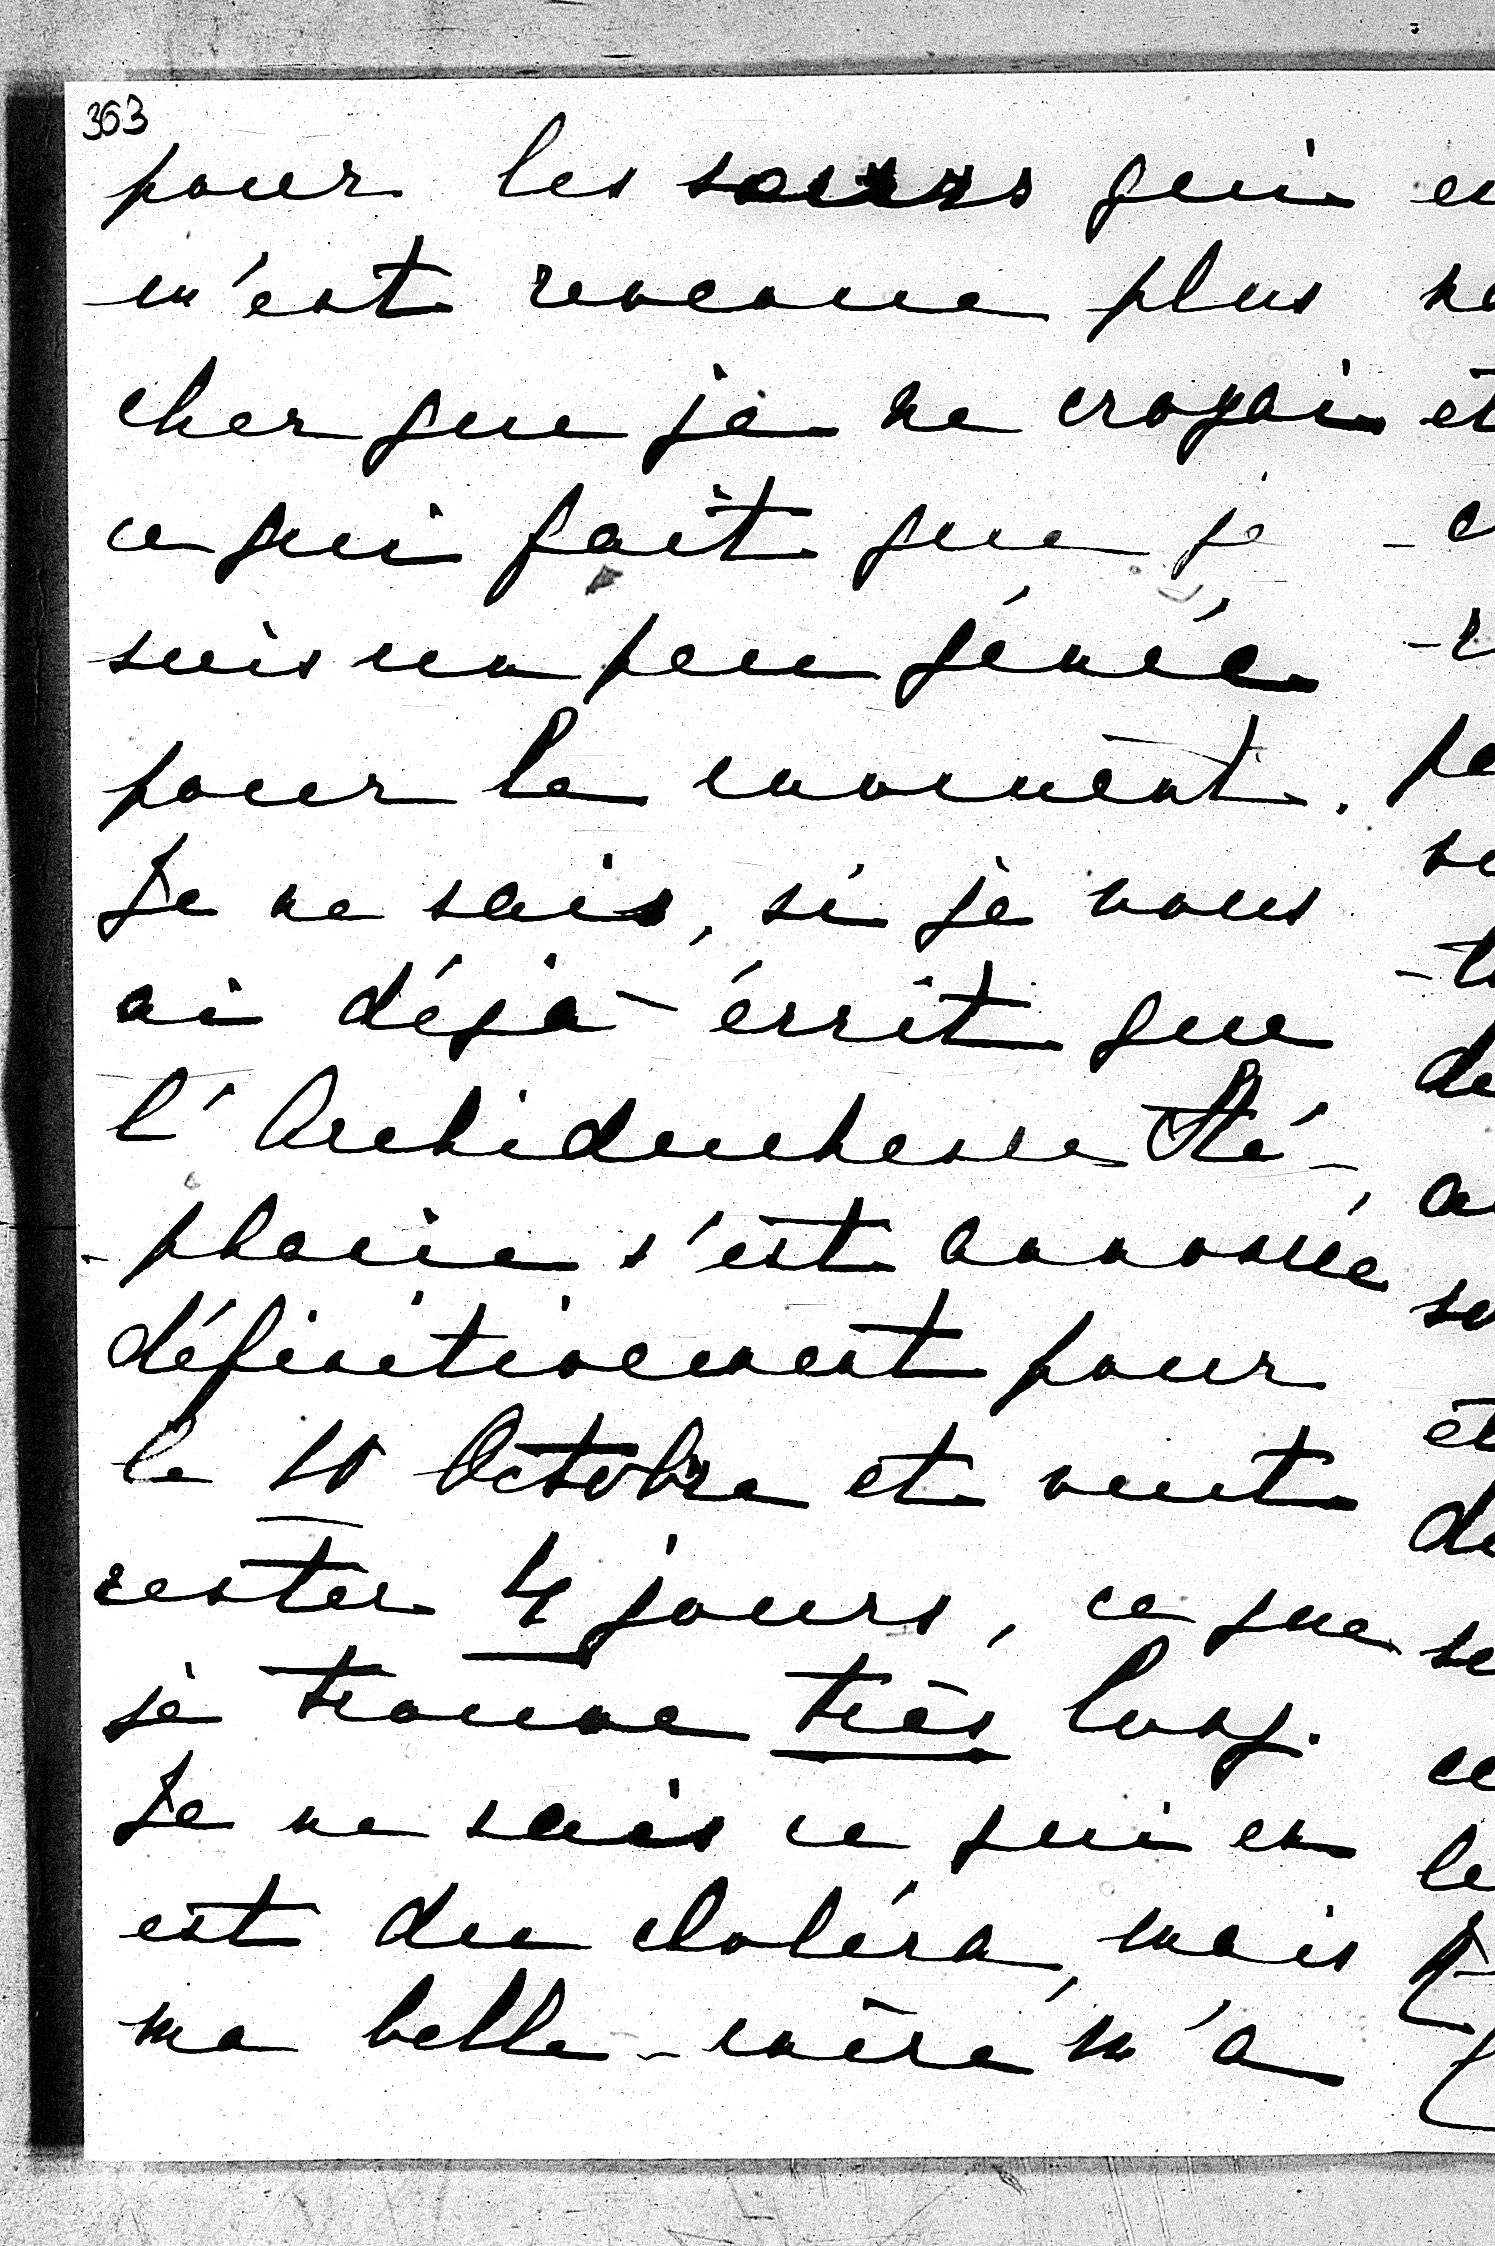 363
pour les soeurs qui
m'est revenue plus
cher que je ne croyais
ce qui fait que je
suis un peu génée
pour le moment.
Je ne sais, si je vous
ai déjà écrit que
l'Archiduchesse Sté-
-phanie s'est annoncée
définitivement pour
le 10 Octobre et veut
rester 4 jours, ce que
je trouve très long.
Je ne sais ce qui en
est du choléra, mais
ma belle-mère m'a